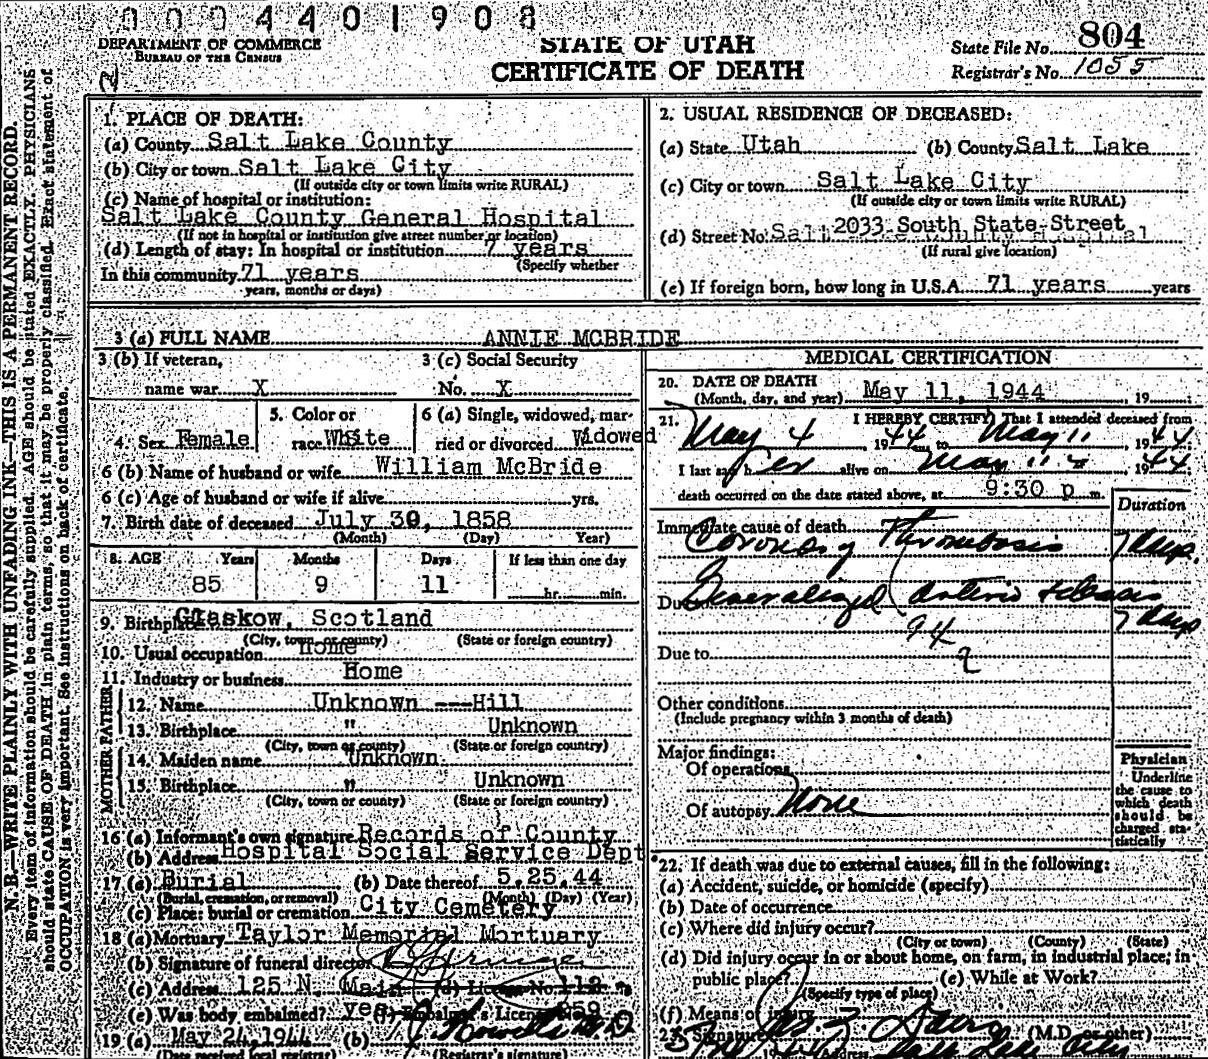 0004401908
DEPARTMENT OF COMMERCE
BUREAU OF THE CENSUS
STATE OF UTAH
CERTIFICATE OF DEATH
State File No. 804
Registrar's No. 1055
N.B.—WRITE PLAINLY WITH UNFADING INK—THIS IS A PERMANENT RECORD.
Every item of information should be carefully supplied. AGE should be stated EXACTLY. PHYSICIANS
should state CAUSE OF DEATH in plain terms, so that it may be properly classified. Exact statement of
OCCUPATION is very important. See instructions on back of certificate.
1. PLACE OF DEATH:
(a) County Salt Lake County
(b) City or town Salt Lake City
(If outside city or town limits write RURAL)
(c) Name of hospital or institution:
Salt Lake County General Hospital
(If not in hospital or institution give street number or location)
(d) Length of stay: In hospital or institution 7 years
(Specify whether
In this community 71 years
years, months or days)
2. USUAL RESIDENCE OF DECEASED:
(a) State Utah (b) County Salt Lake
(c) City or town Salt Lake City
(If outside city or town limits write RURAL)
(d) Street No. 2033 South State Street
(If rural give location)
(e) If foreign born, how long in U.S.A. 71 years years
3 (a) FULL NAME ANNIE MCBRIDE
3 (b) If veteran,
name war X
3 (c) Social Security
No. X
4. Sex Female
5. Color or
race White
6 (a) Single, widowed, mar-
ried or divorced Widowed
6 (b) Name of husband or wife William McBride
6 (c) Age of husband or wife if alive yrs.
7. Birth date of deceased July 30, 1858
(Month) (Day) Year)
8. AGE Years Months Days If less than one day
85 9 11 hr. min.
9. Birthplace Glaskow, Scotland
(City, town or county) (State or foreign country)
10. Usual occupation Home
11. Industry or business Home
FATHER
12. Name Unknown ---Hill
13. Birthplace " Unknown
(City, town or county) (State or foreign country)
MOTHER
14. Maiden name Unknown
15. Birthplace " Unknown
(City, town or county) (State or foreign country)
16 (a) Informant's own signature Records of County
(b) Address Hospital Social Service Dept
17 (a) Burial (b) Date thereof 5.25.44
(Burial, cremation, or removal) (Month) (Day) (Year)
(c) Place: burial or cremation City Cemetery
18 (a) Mortuary Taylor Memorial Mortuary
(b) Signature of funeral director
(c) Address 125 N. Main (d) License No. 112
(e) Was body embalmed? yes (f) Embalmer's License 259
19 (a) May 24, 1944 (b) M.D
(Date received local registrar) (Registrar's signature)
MEDICAL CERTIFICATION
20. DATE OF DEATH
(Month, day, and year) May 11, 1944, 19
21. I HEREBY CERTIFY, That I attended deceased from
May 4 1944 to May 11, 1944
I last saw her alive on May 11 1944
death occurred on the date stated above, at 9:30 p m.
Duration
Immediate cause of death
Coronary Thrombosis 7 days.
Due to Generalized Arterio sclerosis
7 days
94
Due to 2
Other conditions
(Include pregnancy within 3 months of death)
Major findings:
Of operations
Of autopsy None
Physician
Underline
the cause to
which death
should be
charged sta-
tistically
22. If death was due to external causes, fill in the following:
(a) Accident, suicide, or homicide (specify)
(b) Date of occurrence
(c) Where did injury occur?
(City or town) (County) (State)
(d) Did injury occur in or about home, on farm, in industrial place, in
public place? (e) While at Work?
(Specify type of place)
(f) Means of injury
23. Signature (M.D. or other)
1944 Address Salt Lake City